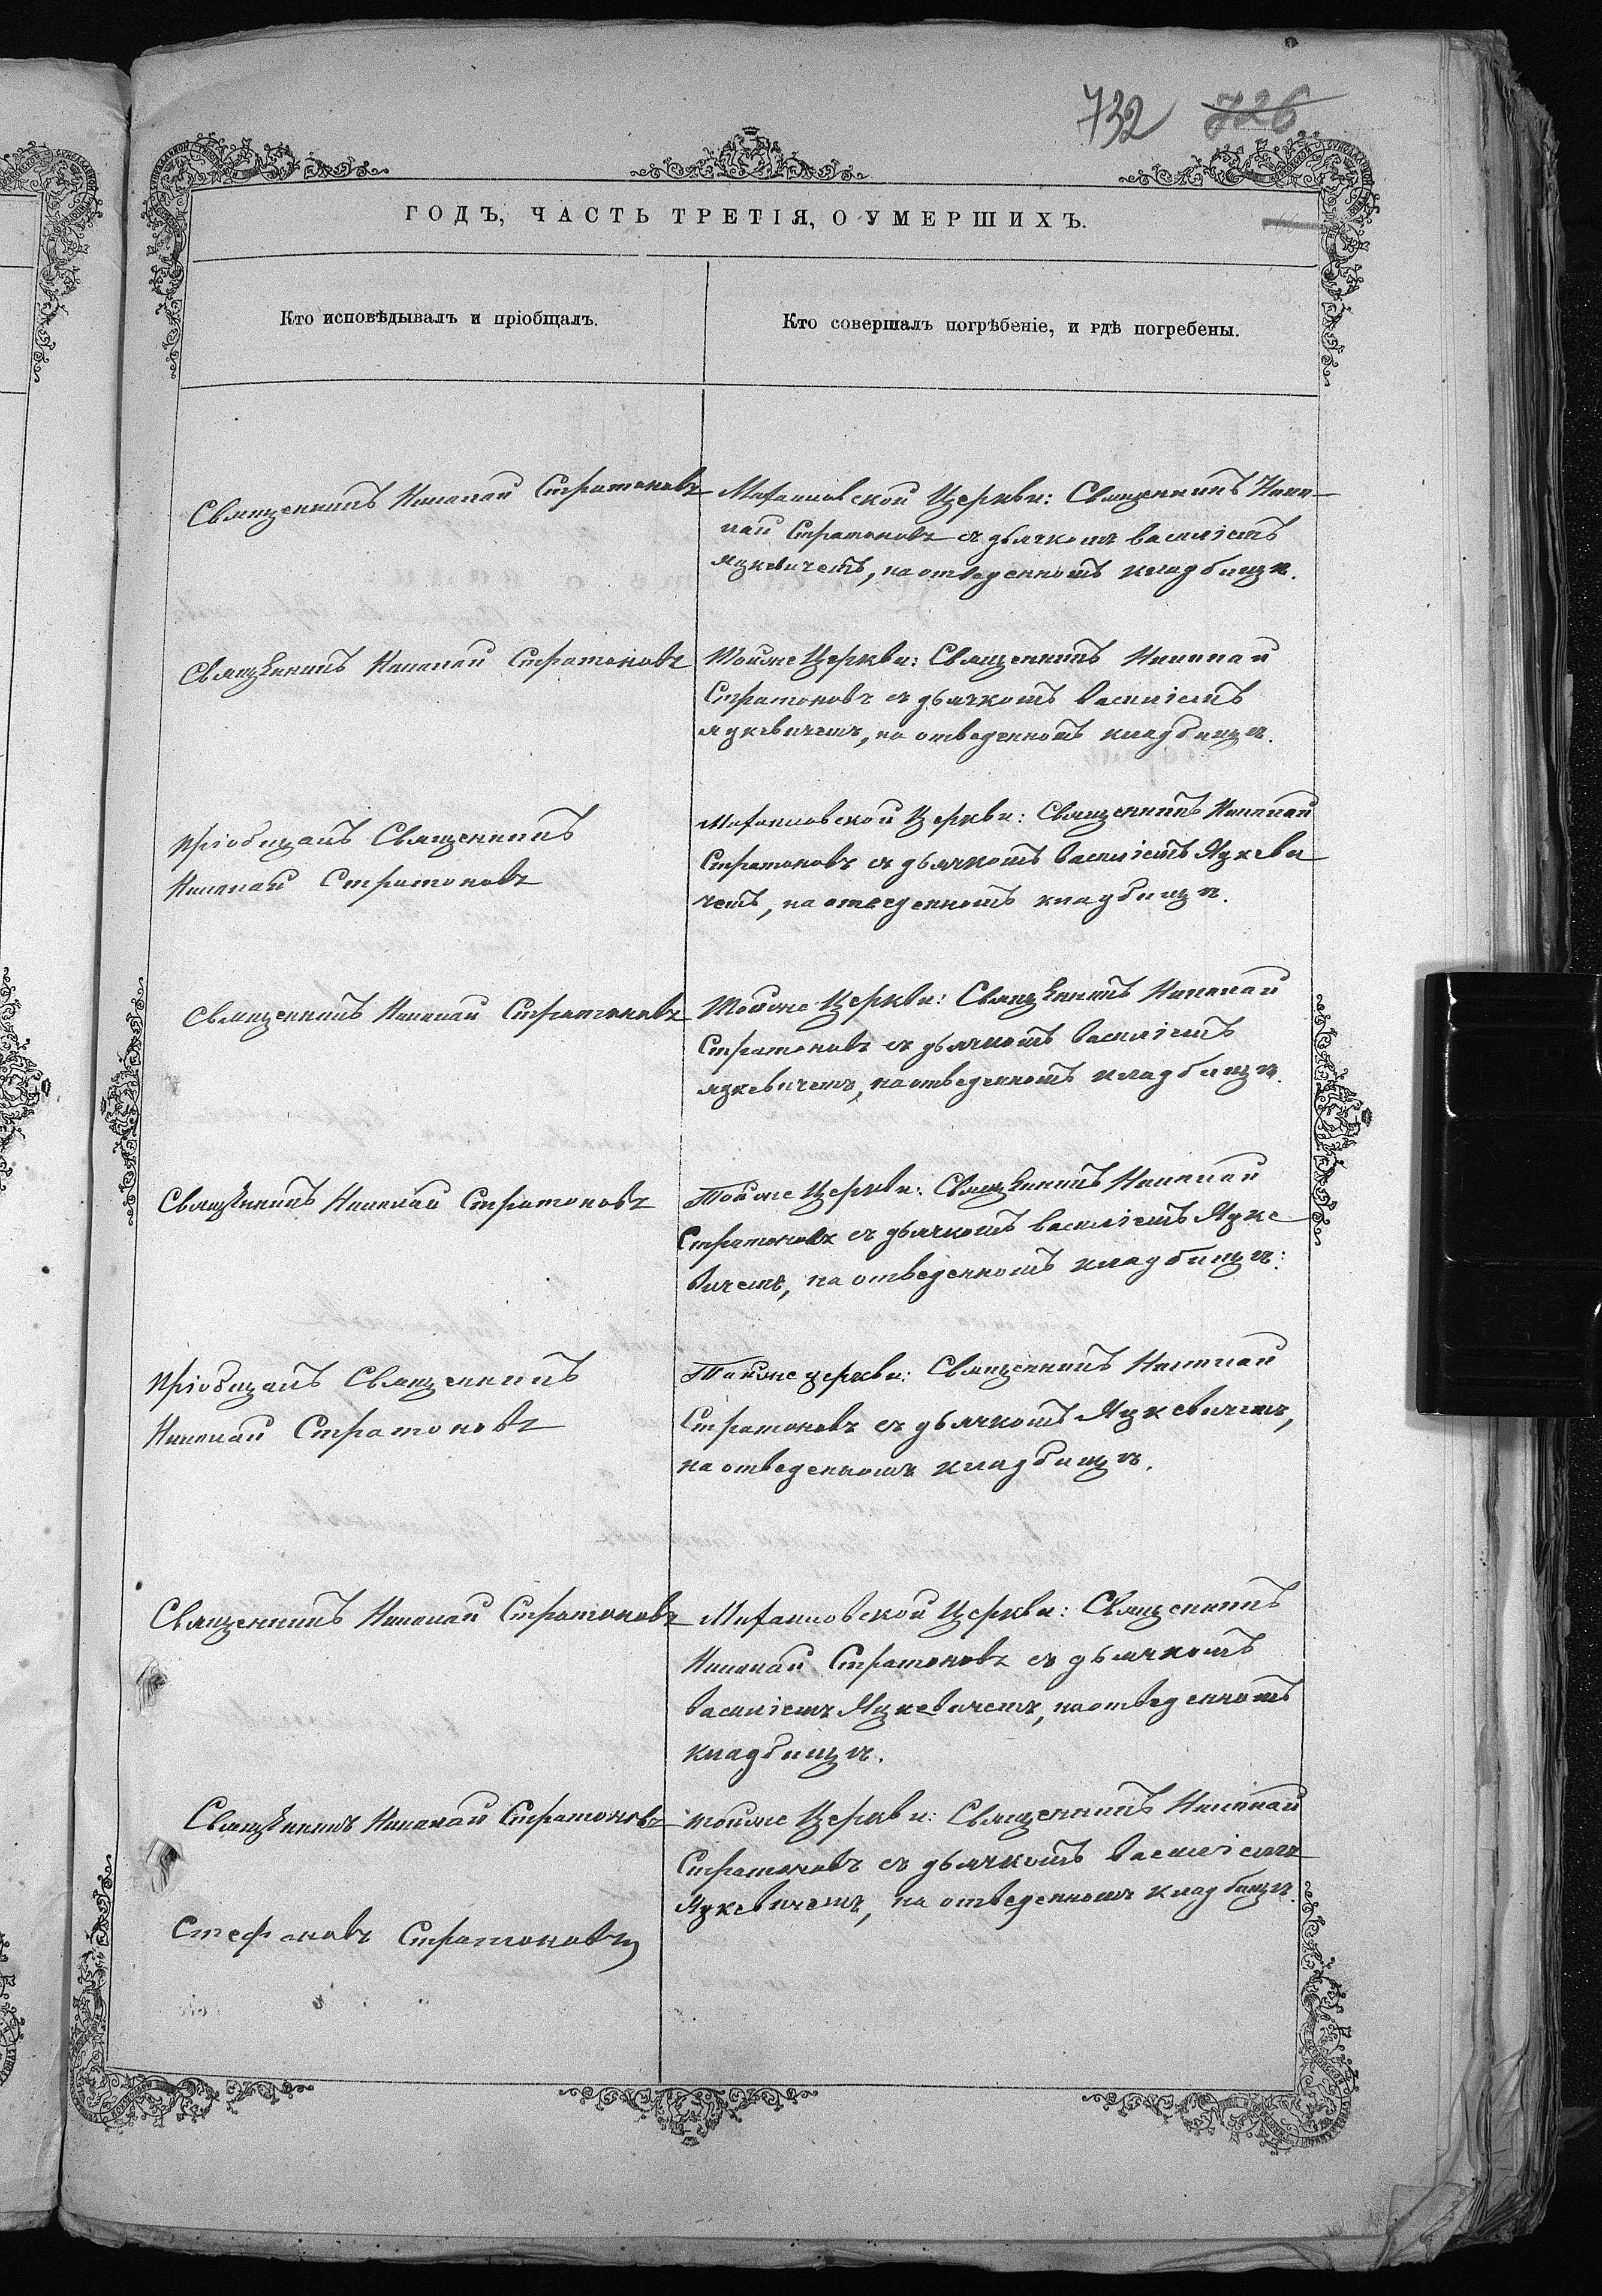 732 726
ГОДЪ, ЧАСТЬ ТРЕТІЯ, О УМЕРШИХЪ.
Кто исповѣдывалъ и пріобщалъ.
Кто совершалъ погрѣбеніе, и гдѣ погребены.
Священникъ Николай Стратоновъ
Михаиловской Церкви: Священникъ Нико-
лай Стратоновъ съ дьячкомъ Василіемъ
Яцкевичемъ, на отведенномъ кладбищѣ.
Священникъ Николай Стратоновъ
Тойже Церкви: Священникъ Николай
Стратоновъ съ дьячкомъ Василіемъ
Яцкевичемъ, на отведенномъ кладбищѣ.
Пріобщалъ Священникъ
Николай Стратоновъ
Михаиловской Церкви: Священникъ Николай
Стратоновъ съ дьячкомъ Василіемъ Яцкеви
чемъ, на отведенномъ кладбищѣ.
Священникъ Николай Стратоновъ
Тойже Церкви: Священникъ Николай
Стратоновъ съ дьячкомъ Василіемъ
Яцкевичемъ, на отведенномъ кладбищѣ.
Священникъ Николай Стратоновъ
Тойже Церкви: Священникъ Николай
Стратоновъ съ дьячкомъ Василіемъ Яцке
вичемъ, на отведенномъ кладбищѣ.
Пріобщалъ Священникъ
Николай Стратоновъ
Тойже церкви: Священникъ Николай
Стратоновъ съ дьячкомъ Яцкевичемъ,
на отведенномъ кладбищѣ.
Священникъ Николай Стратоновъ
Михаиловской Церкви: Священникъ
Николай Стратоновъ съ дьячкомъ
Василіемъ Яцкевичемъ, на отведенномъ
кладбищѣ.
Священникъ Николай Стратоновъ
тойже Церкви: Священникъ Николай
Стратоновъ съ дьячкомъ Василіемъ
Яцкевичемъ, на отведенномъ кладбищѣ.
Стефановъ Стратоновъ